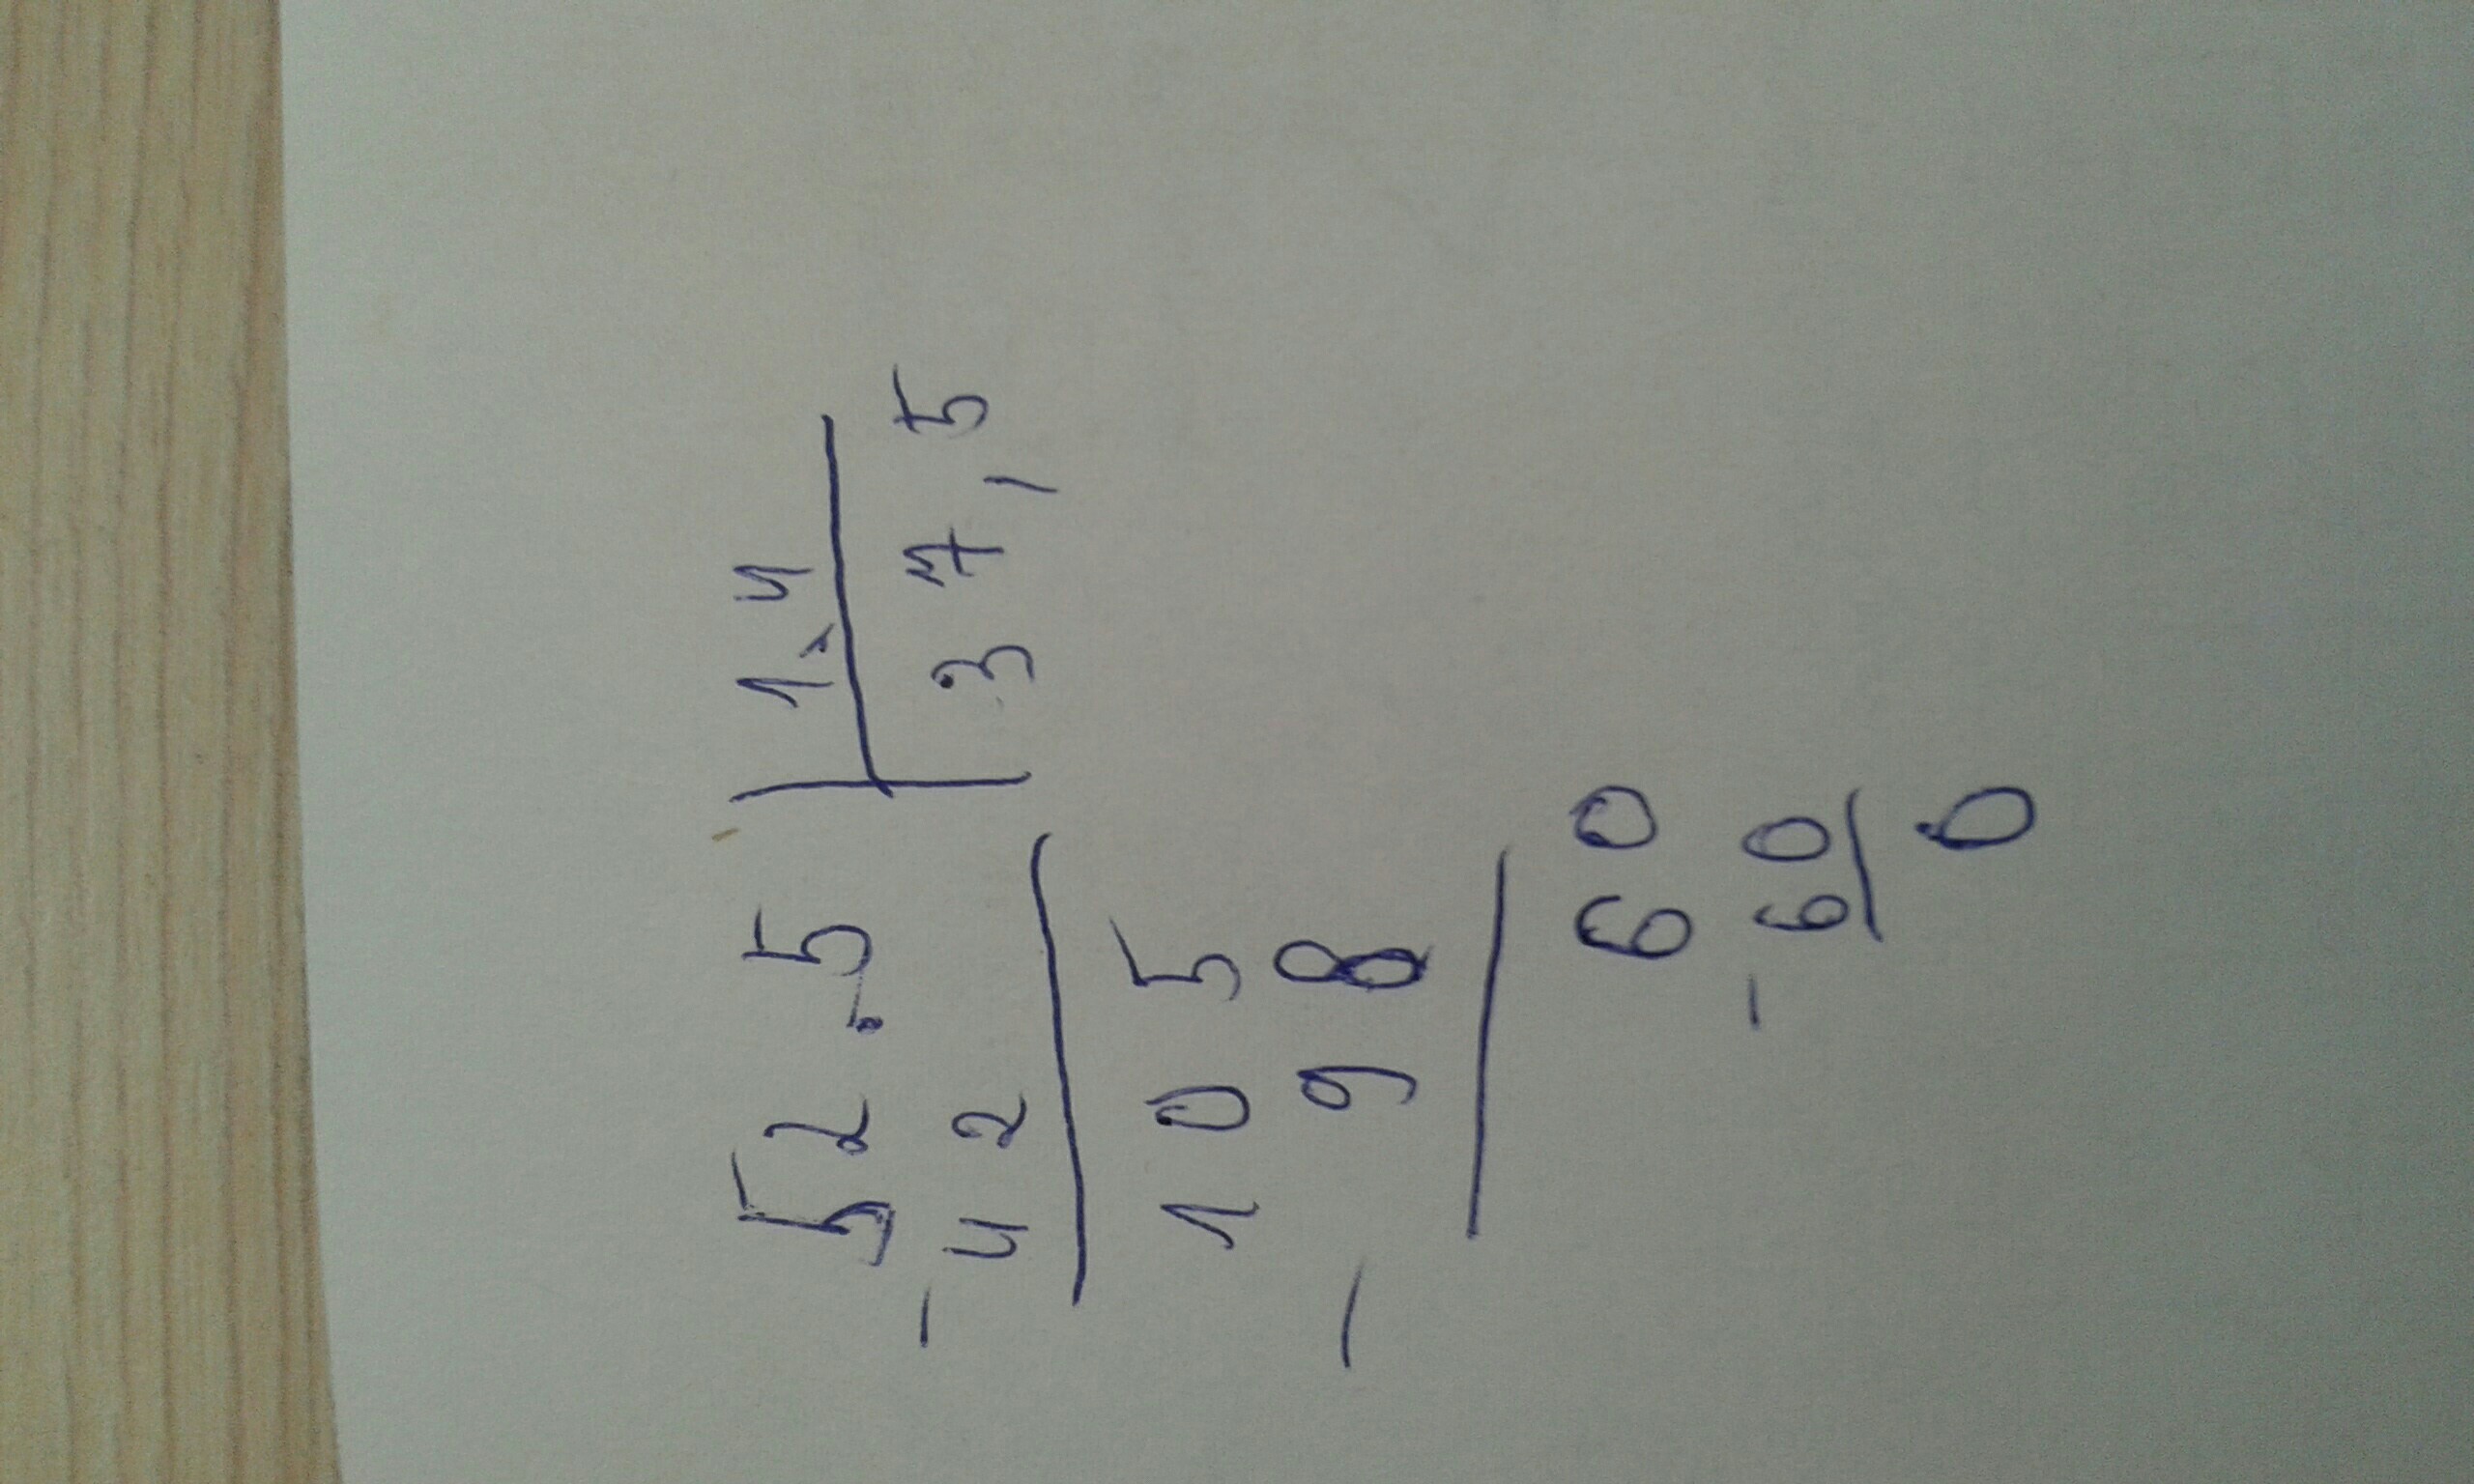 52.5 | 1.4
- 42 | 37,5
105
- 98
60
- 60
0